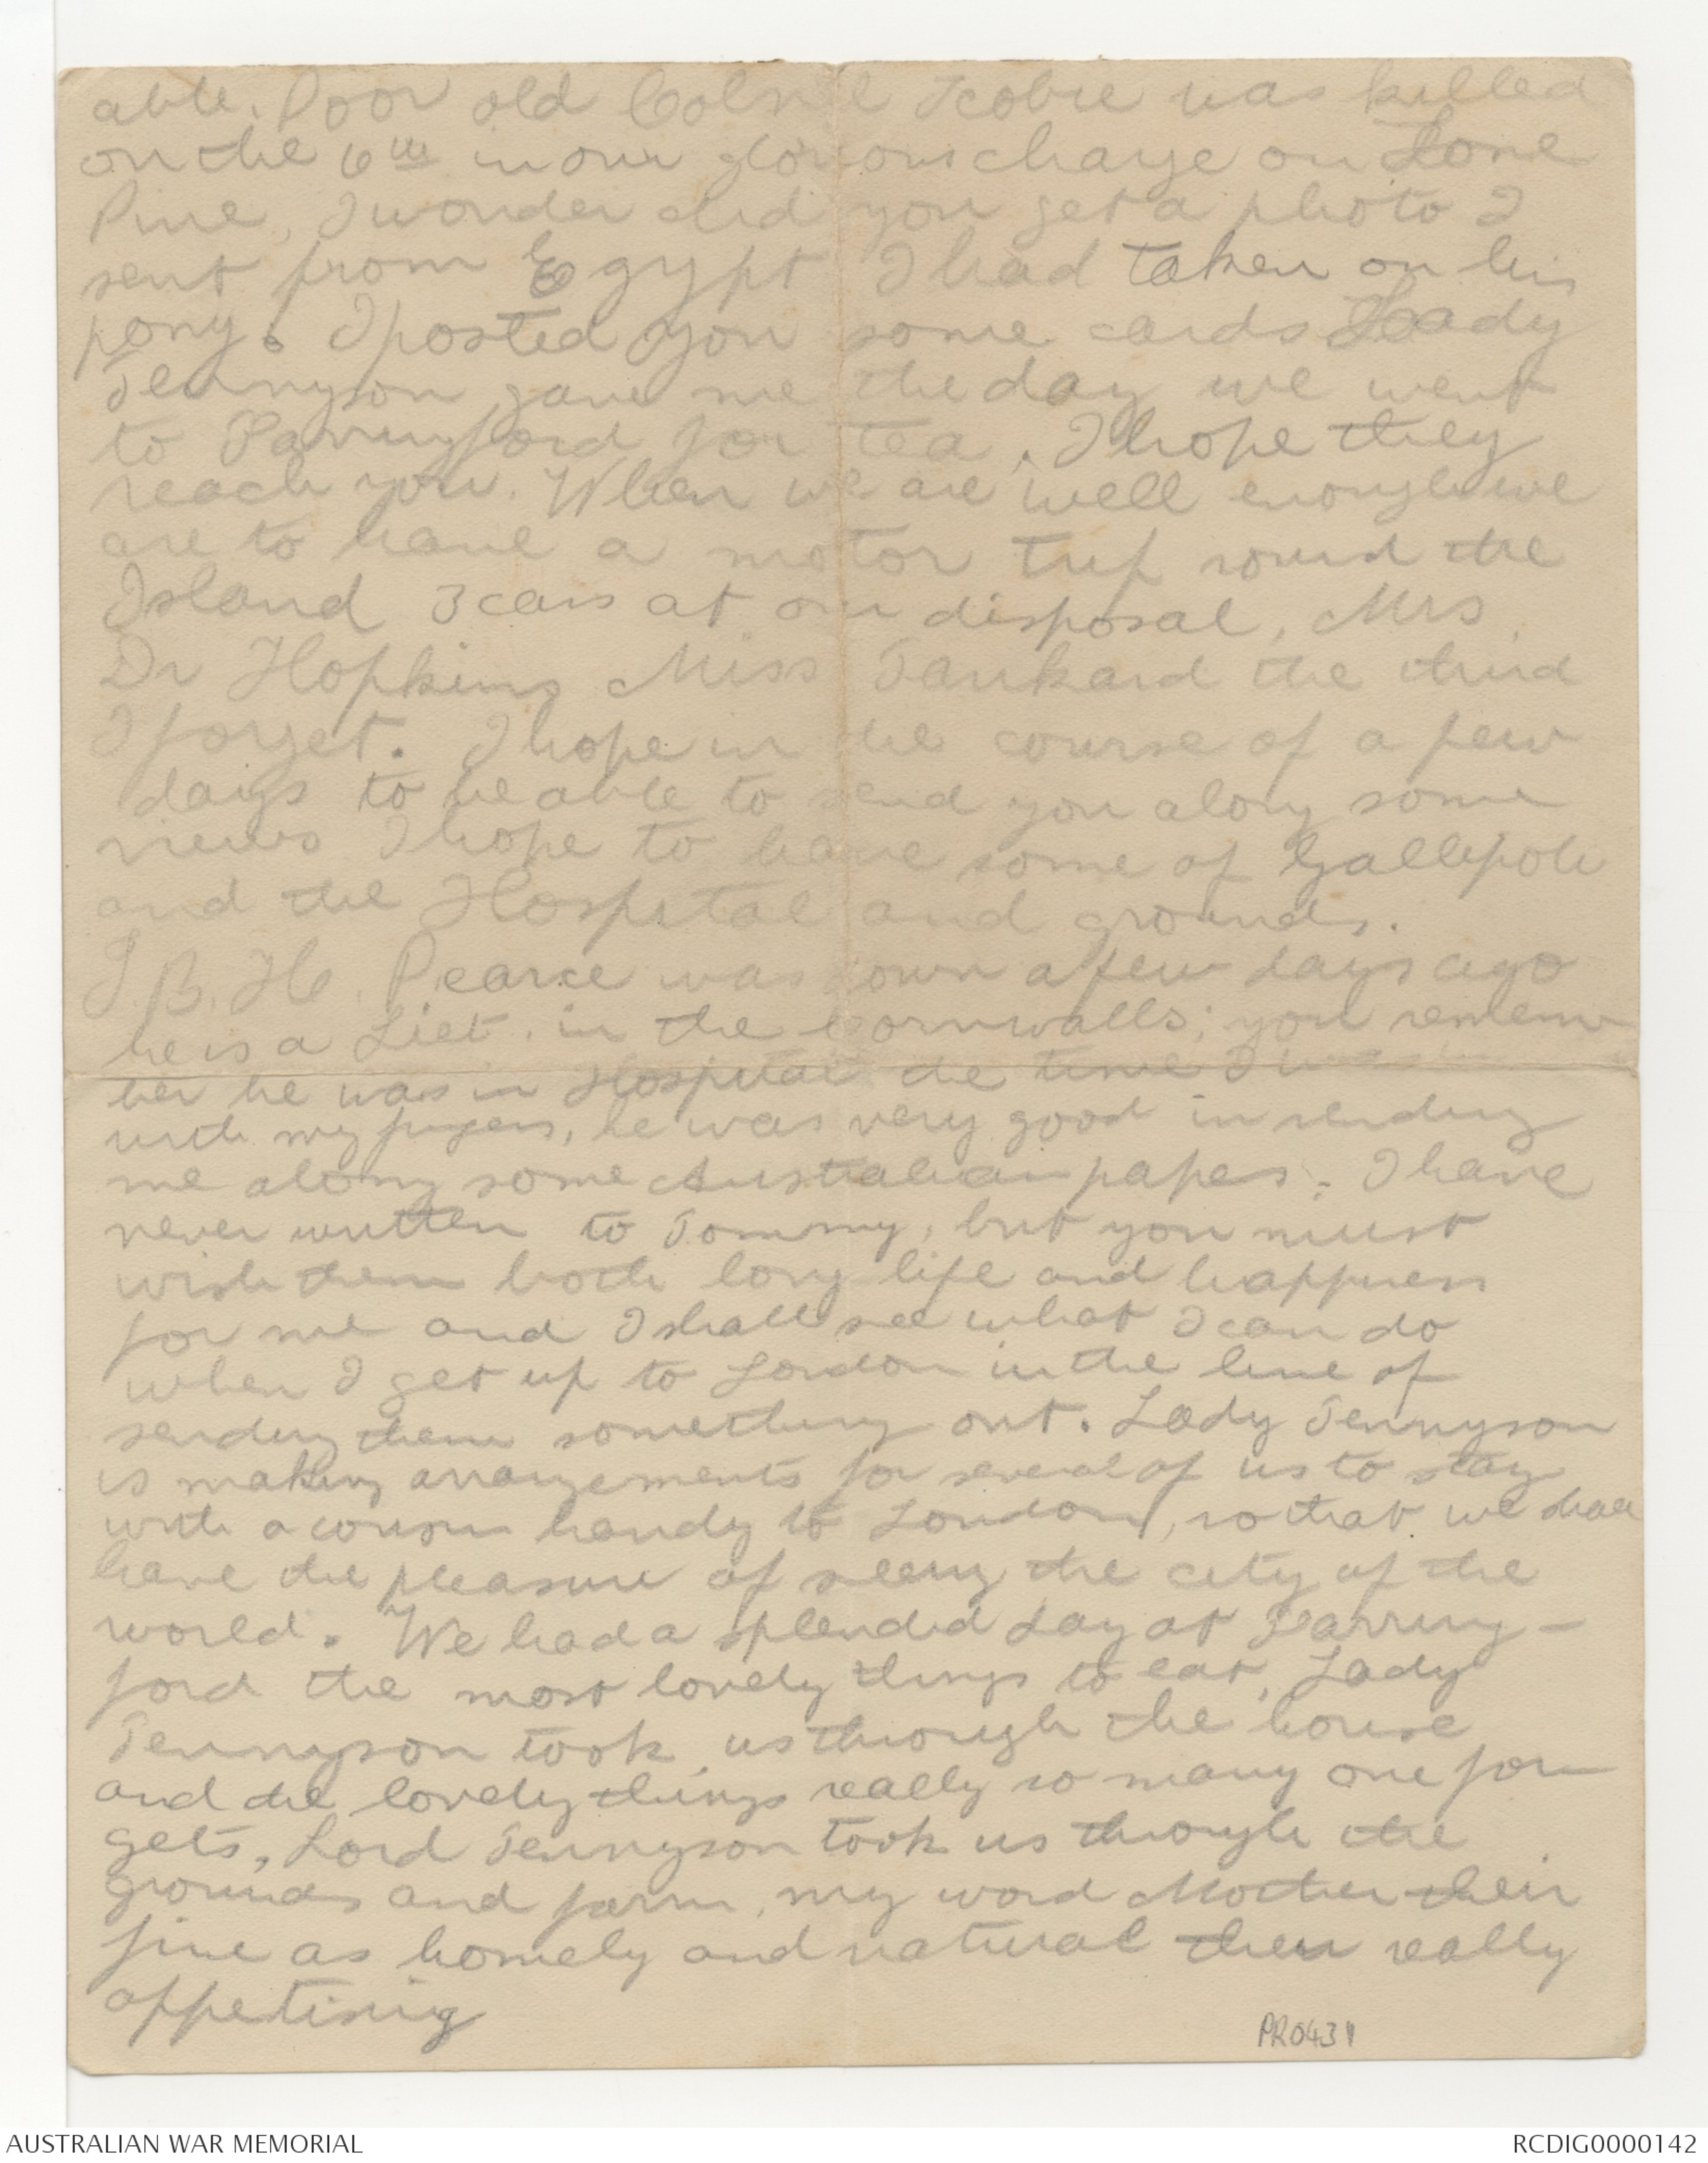 able. Poor old Colonel Scobie was killed
on the 6th in our glorious charge on Lone
Pine, I wonder did you get a photo I
sent from Egypt I had taken on his
pony. I posted you some cards Lady
Tennyson gave me the day we went
to Farringford for tea, I hope they
reach you. When we are well enough we
are to have a motor trip round the
Island 3 cars at our disposal, Mrs.
Dr Hopkins Miss Tankard the third
I forget. I hope in the course of a few
days to be able to send you along some
views I hope to have some of Gallepoli
and the Hospital and grounds.
J.B.H. Pearce was down a few days ago
he is a Liet. in the Cornwalls; you remem
ber he was in Hospital the time I was in
with my fingers, he was very good in sending
me along some Australian papers; I have
never written to Tommy, but you must
wish them both long life and happness
for me and I shall see what I can do
when I get up to London in the line of
sending them something out. Lady Tennyson
is making arrangements for several of us to stay
with a cousin handy to London, so that we shall
have the pleasure of seeing the city of the
world. We had a splended day at Farring-
ford the most lovely things to eat, Lady
Tennyson took us through the house
and the lovely things really so many one for
gets, Lord Tennyson took us through the
grounds and farm, my word Mother their
fine as homely and natural then really
appetising
PR0431
AUSTRALIAN WAR MEMORIAL
RCDIG0000142